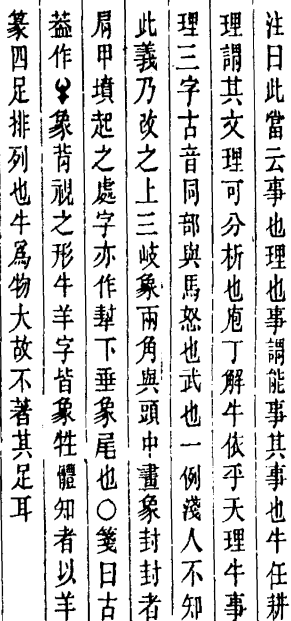 注曰此當云事也理也事謂能事其事也牛任耕
理謂其文理可分析也庖丁解牛依乎天理牛事
理三字古音同部與馬怒也武也一例淺人不知
此義乃改之上三岐象兩角與頭中畫象封封者
肩甲墳起之處字亦作犎下垂象尾也○箋曰古
葢作象背視之形牛羊字皆象牲體知者以羊
篆四足排列也牛爲物大故不著其足耳